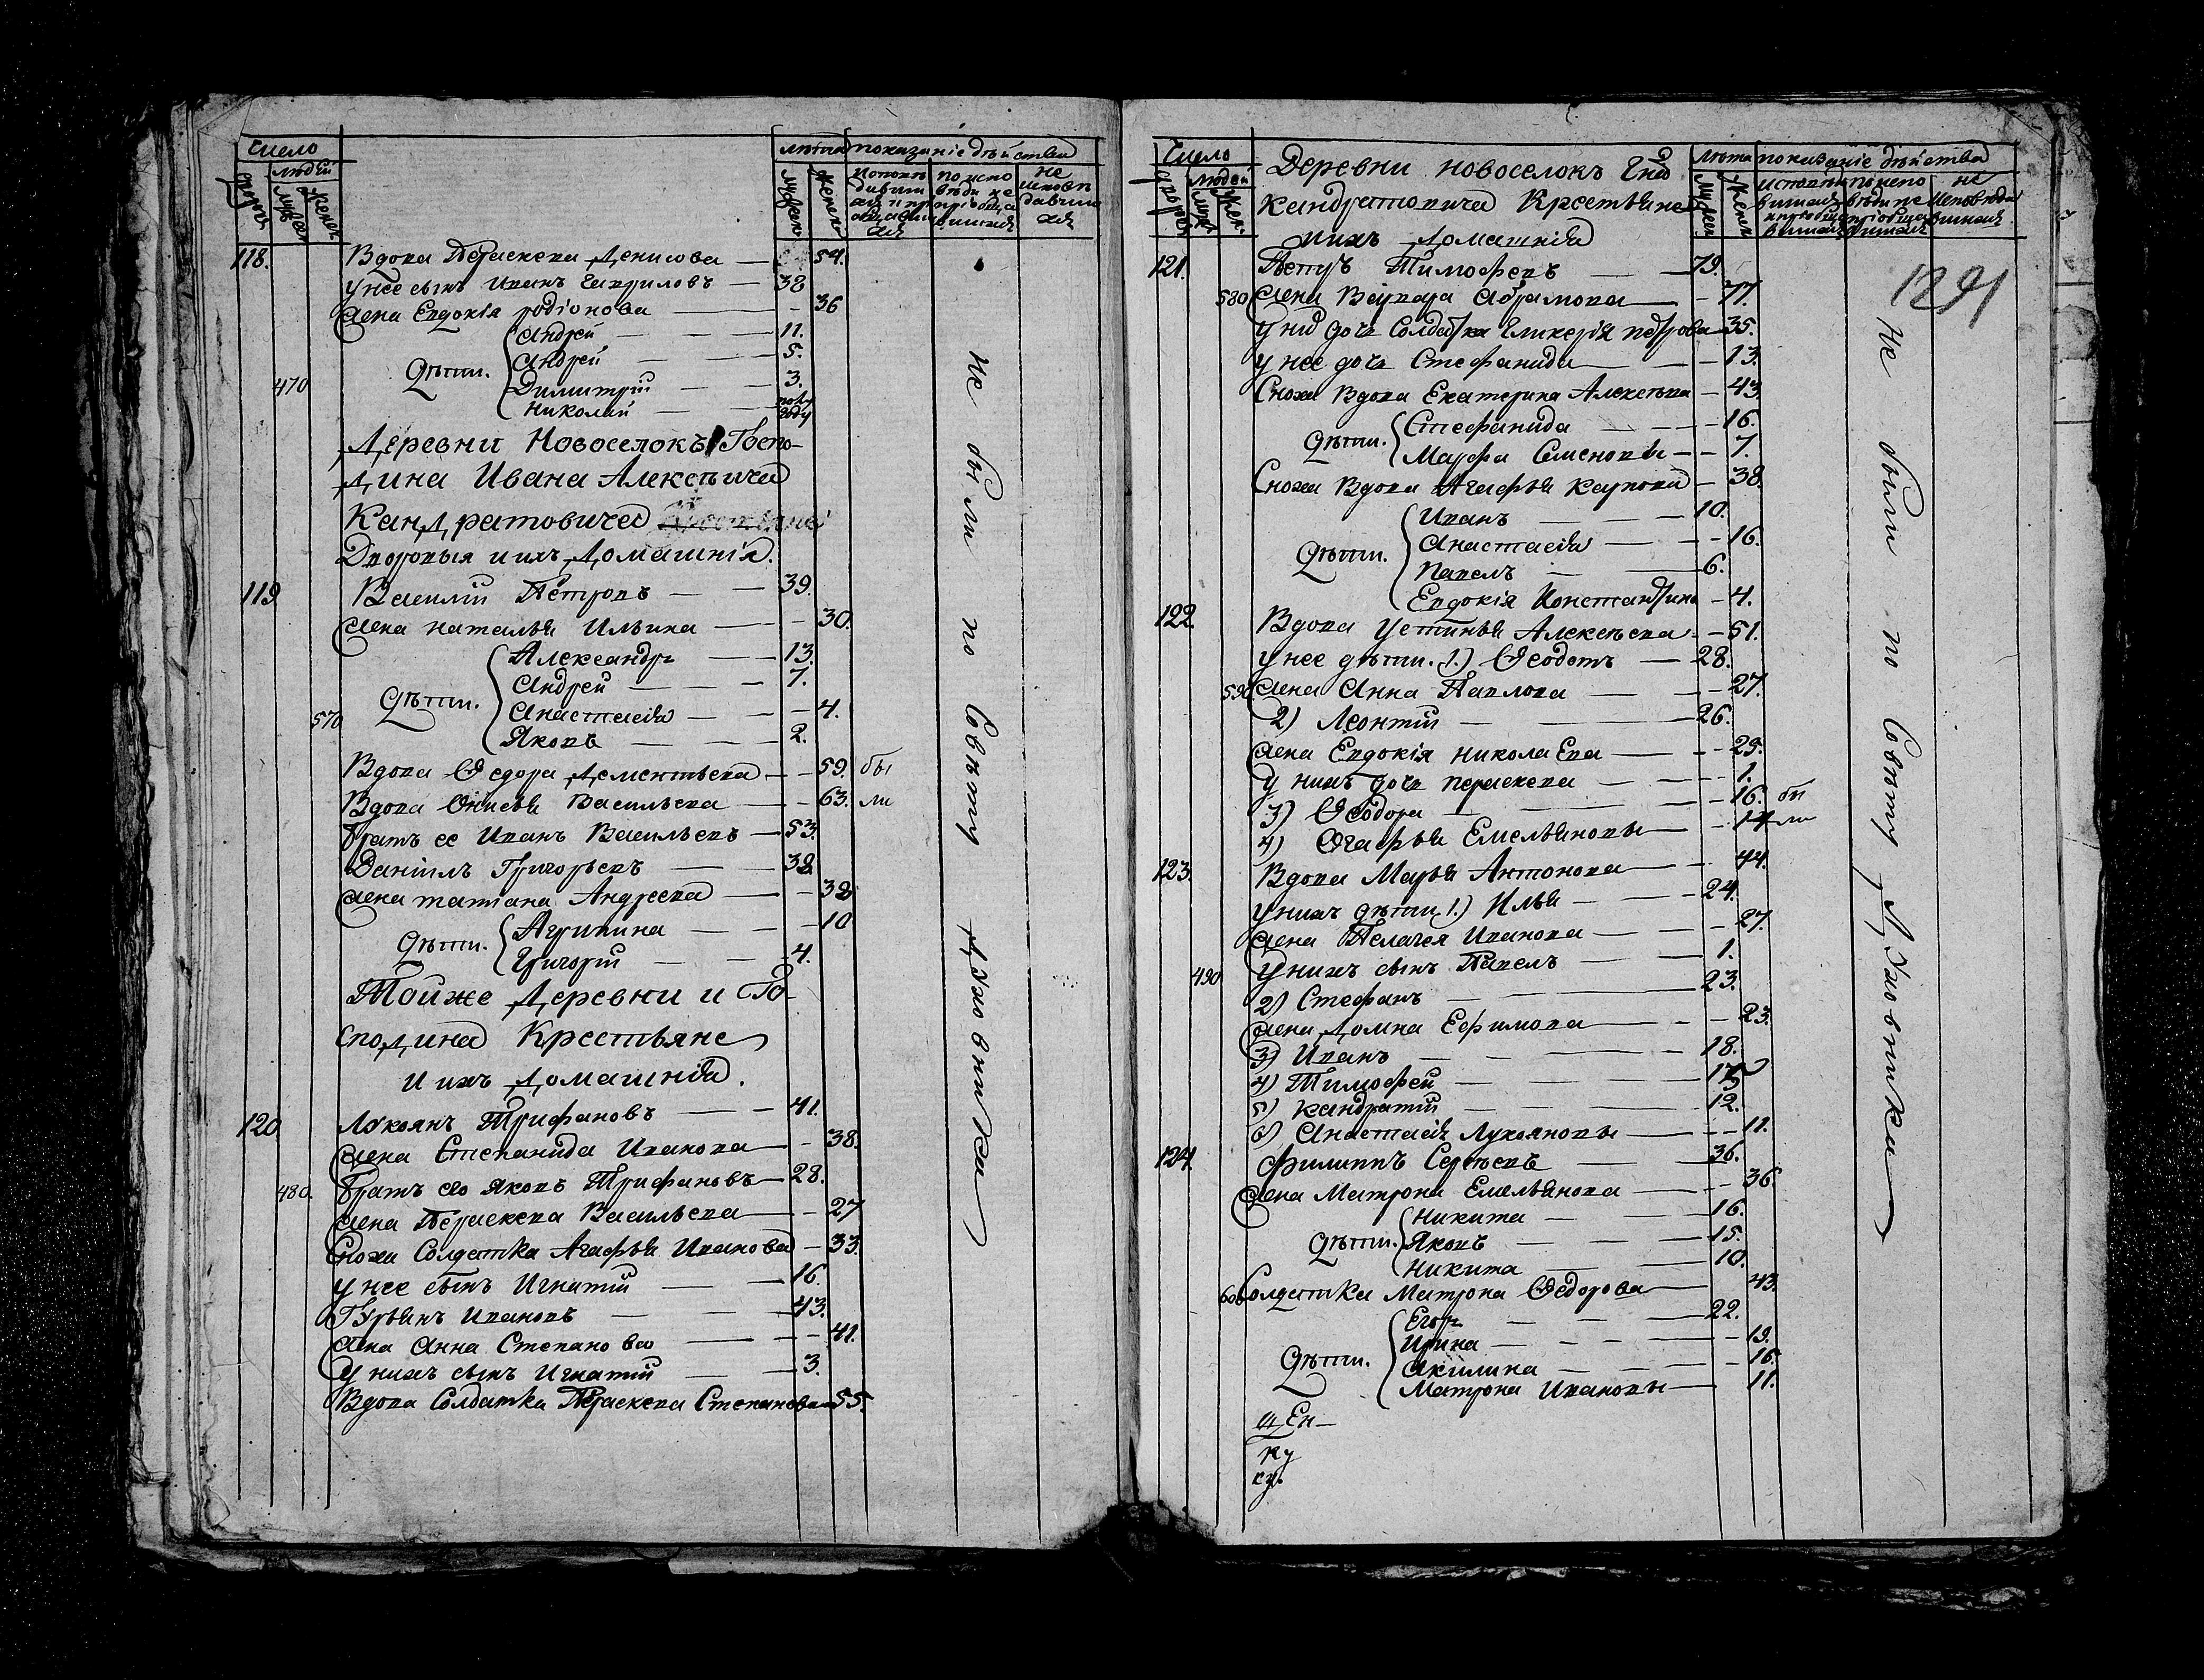 число
людей
дворовъ
мужеск
женск
лѣта
показаніе дѣйства
мужеск
женск
не
118. Вдова Параскева Денисова — 59.
у нее сынъ Иванъ Гавриловъ — 38
жена Евдокія родіонова — 36
Андрей — 11.
Андрей — 5.
дѣти.
470 Димитрій — 3.
Николай — полу году
Деревни Новоселокъ Госпо-
дина Ивана Алексѣича
Кандратовича
Дворовыя и ихъ Домашнія.
119 Василій Петровъ — 39.
жена наталья Ильина — 30.
Александръ — 13.
Андрей — 7.
дѣти.
570 Анастасія — 4.
Яковъ — 2.
Вдова Ѳедора Дементьева — 59. бы
Вдова Онисья Васильева — 63. ли
братъ ее Иванъ Васильевъ — 53.
Даніилъ Григорьевъ — 38
жена татіана Андреева — 38
Агрипина — 10
дѣти.
Григорій — 4.
Тойже Деревни и Го-
сподина Крестьяне
и ихъ Домашнія.
120 Лукоянъ Трифановъ — 41.
жена Степанида Иванова — 38.
480. братъ его Яковъ Трифановъ — 28.
жена Параскева Васильева — 27
Сноха Солдатка Агафья Иванова — 33.
у нее сынъ Игнатій — 16.
Гурьянъ Ивановъ — 43.
жена Анна Степанова — 41.
у нихъ сынъ Игнатій — 3.
Вдова Солдатка Параскева Степанова 55.
не были по Совѣту Духовника
число
людей
лѣта
показаніе дѣйства
Деревни новоселокъ Гна
Кандратовича Крестьяне
и ихъ Домашнія
1291
121. Петръ Тимофеевъ — 79.
580 жена Варвара Абрамова — 77.
у нихъ дочь Солдатка Гликерія петрова 35.
у нее дочь Стефанида — 13.
Сноха Вдова Екатерина Алексѣева — 43
Стефанида — 16.
дѣти.
Марфа Семеновы — 7.
Сноха Вдова Агафья карпова — 38.
Иванъ — 10.
Анастасія — 16.
дѣти.
Павелъ — 6.
Евдокія Константины — 4.
122. Вдова Устинья Алексѣева — 51.
у нее дѣти. 1.) Ѳеодотъ — 28.
590 жена Анна Павлова — 27.
2) Леонтій — 26.
жена Евдокія николаева — 29.
У нихъ дочь параскева — 1.
3) Ѳеодора — 16. бы
4) Огафья Емельяновы — 14 ли
123. Вдова Марья Антонова — 44.
у нихъ дѣти 1.) Илья — 24.
жена Пелагея Иванова — 27.
490 у нихъ сынъ Павелъ — 1.
2) Стефанъ — 23.
жена Домна Ефимова — 23.
3) Иванъ — 18.
4) Тимофей — 15
5) Кандратій — 12.
6) Анастасія Лукояновы — 11.
124. Филиппъ Сергѣевъ — 36.
жена Матрона Емельянова — 36
Никита — 16.
дѣти. Яковъ — 15.
Никита — 10.
600 Солдатка Матрона Ѳедорова — 43.
Егоръ — 22.
Ирина — 19.
дѣти.
Акилина — 16.
Матрона Ивановы — 11.
не были по Совѣту Духовника